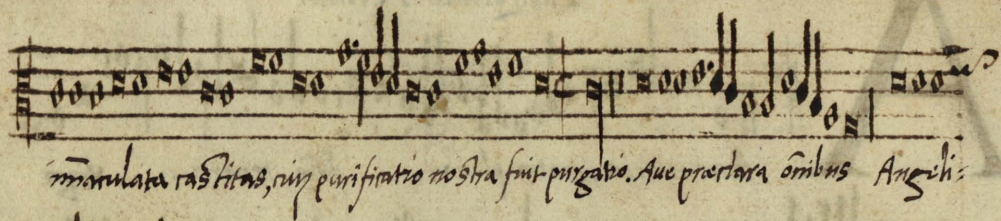 im̄aculata castitas, cuiꝰ purificatio nostra fuit purgatio. Aue præclara om̄ibus Angeli=